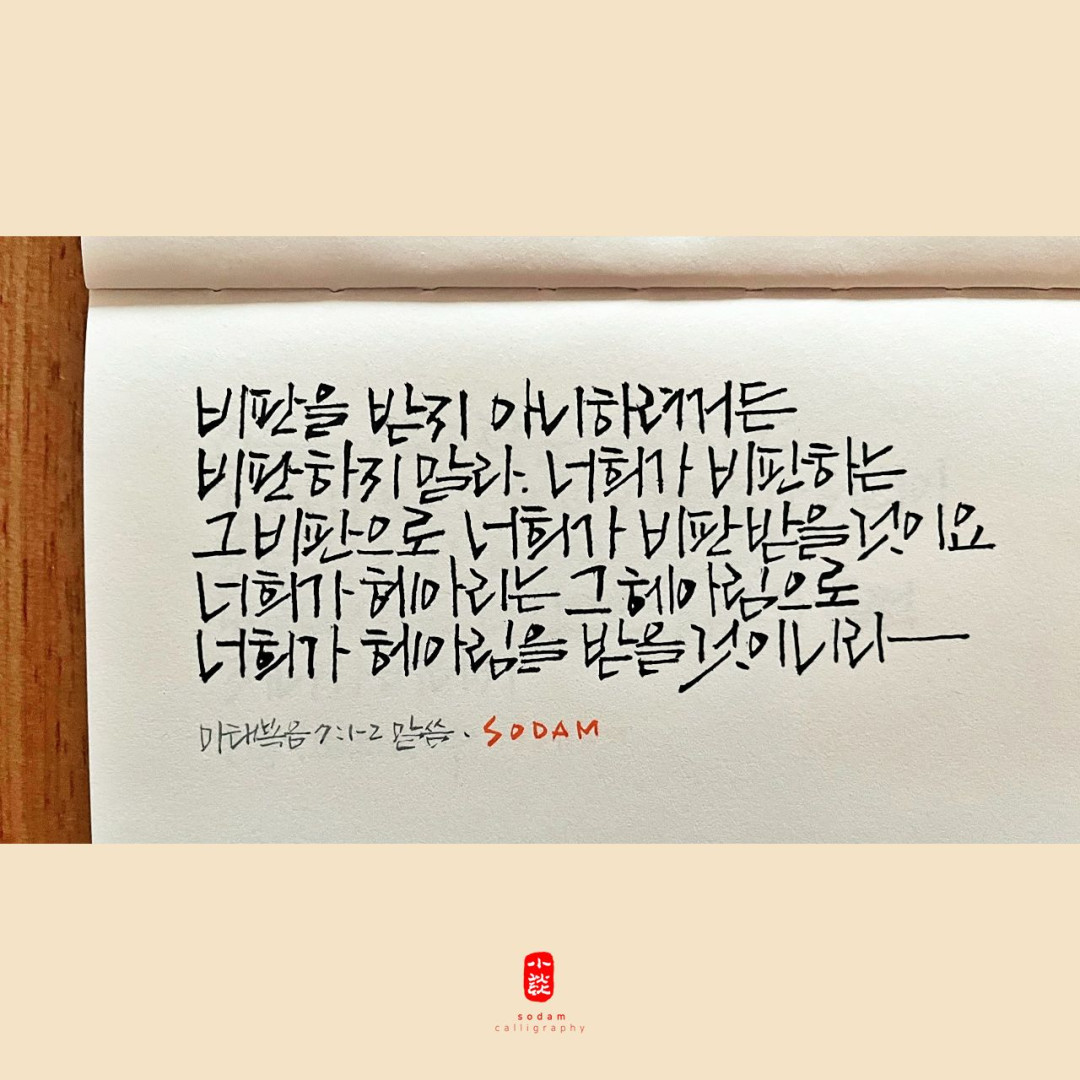 비판을 받지 아니하려거든
비판하지 말라. 너희가 비판하는
그 비판으로 너희가 비판 받을 것이요
너희가 헤아리는 그 헤아림으로
너희가 헤아림을 받을 것이니라
마태복음 7:1-2 말씀. SODAM
小談
sodam
calligraphy